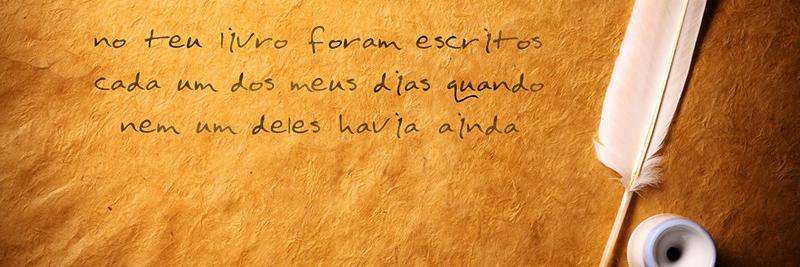 no teu livro foram escritos
cada um dos meus dias quando
nem um deles havia ainda